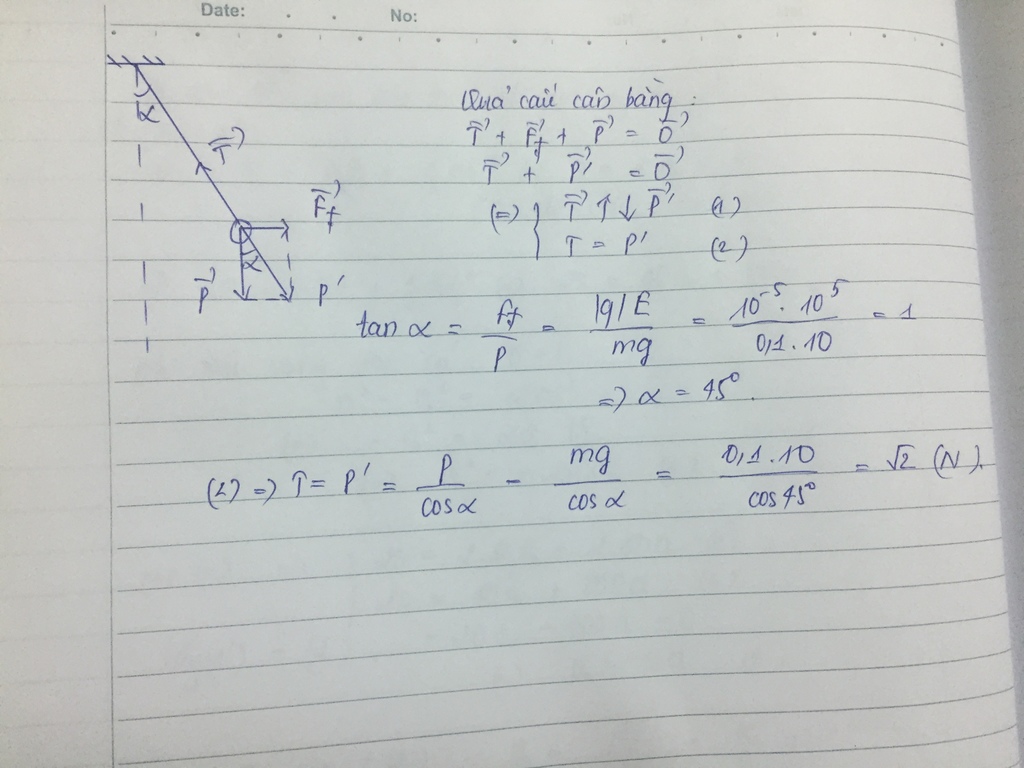 Date:
No:
Quả cầu cân bằng:
T⃗ + F⃗đ + P⃗ = 0⃗
T⃗ + P⃗' = 0⃗
(=) { T⃗ ↑↓ P⃗' (1)
T = P' (2)
α
T⃗
F⃗đ
α
P⃗
P'
tan α = Fđ/P = |q|E/mg = 10⁻⁵.10⁵/0,1.10 = 1
=) α = 45°.
(2) =) T = P' = P/cosα = mg/cosα = 0,1.10/cos45° = √2 (N).